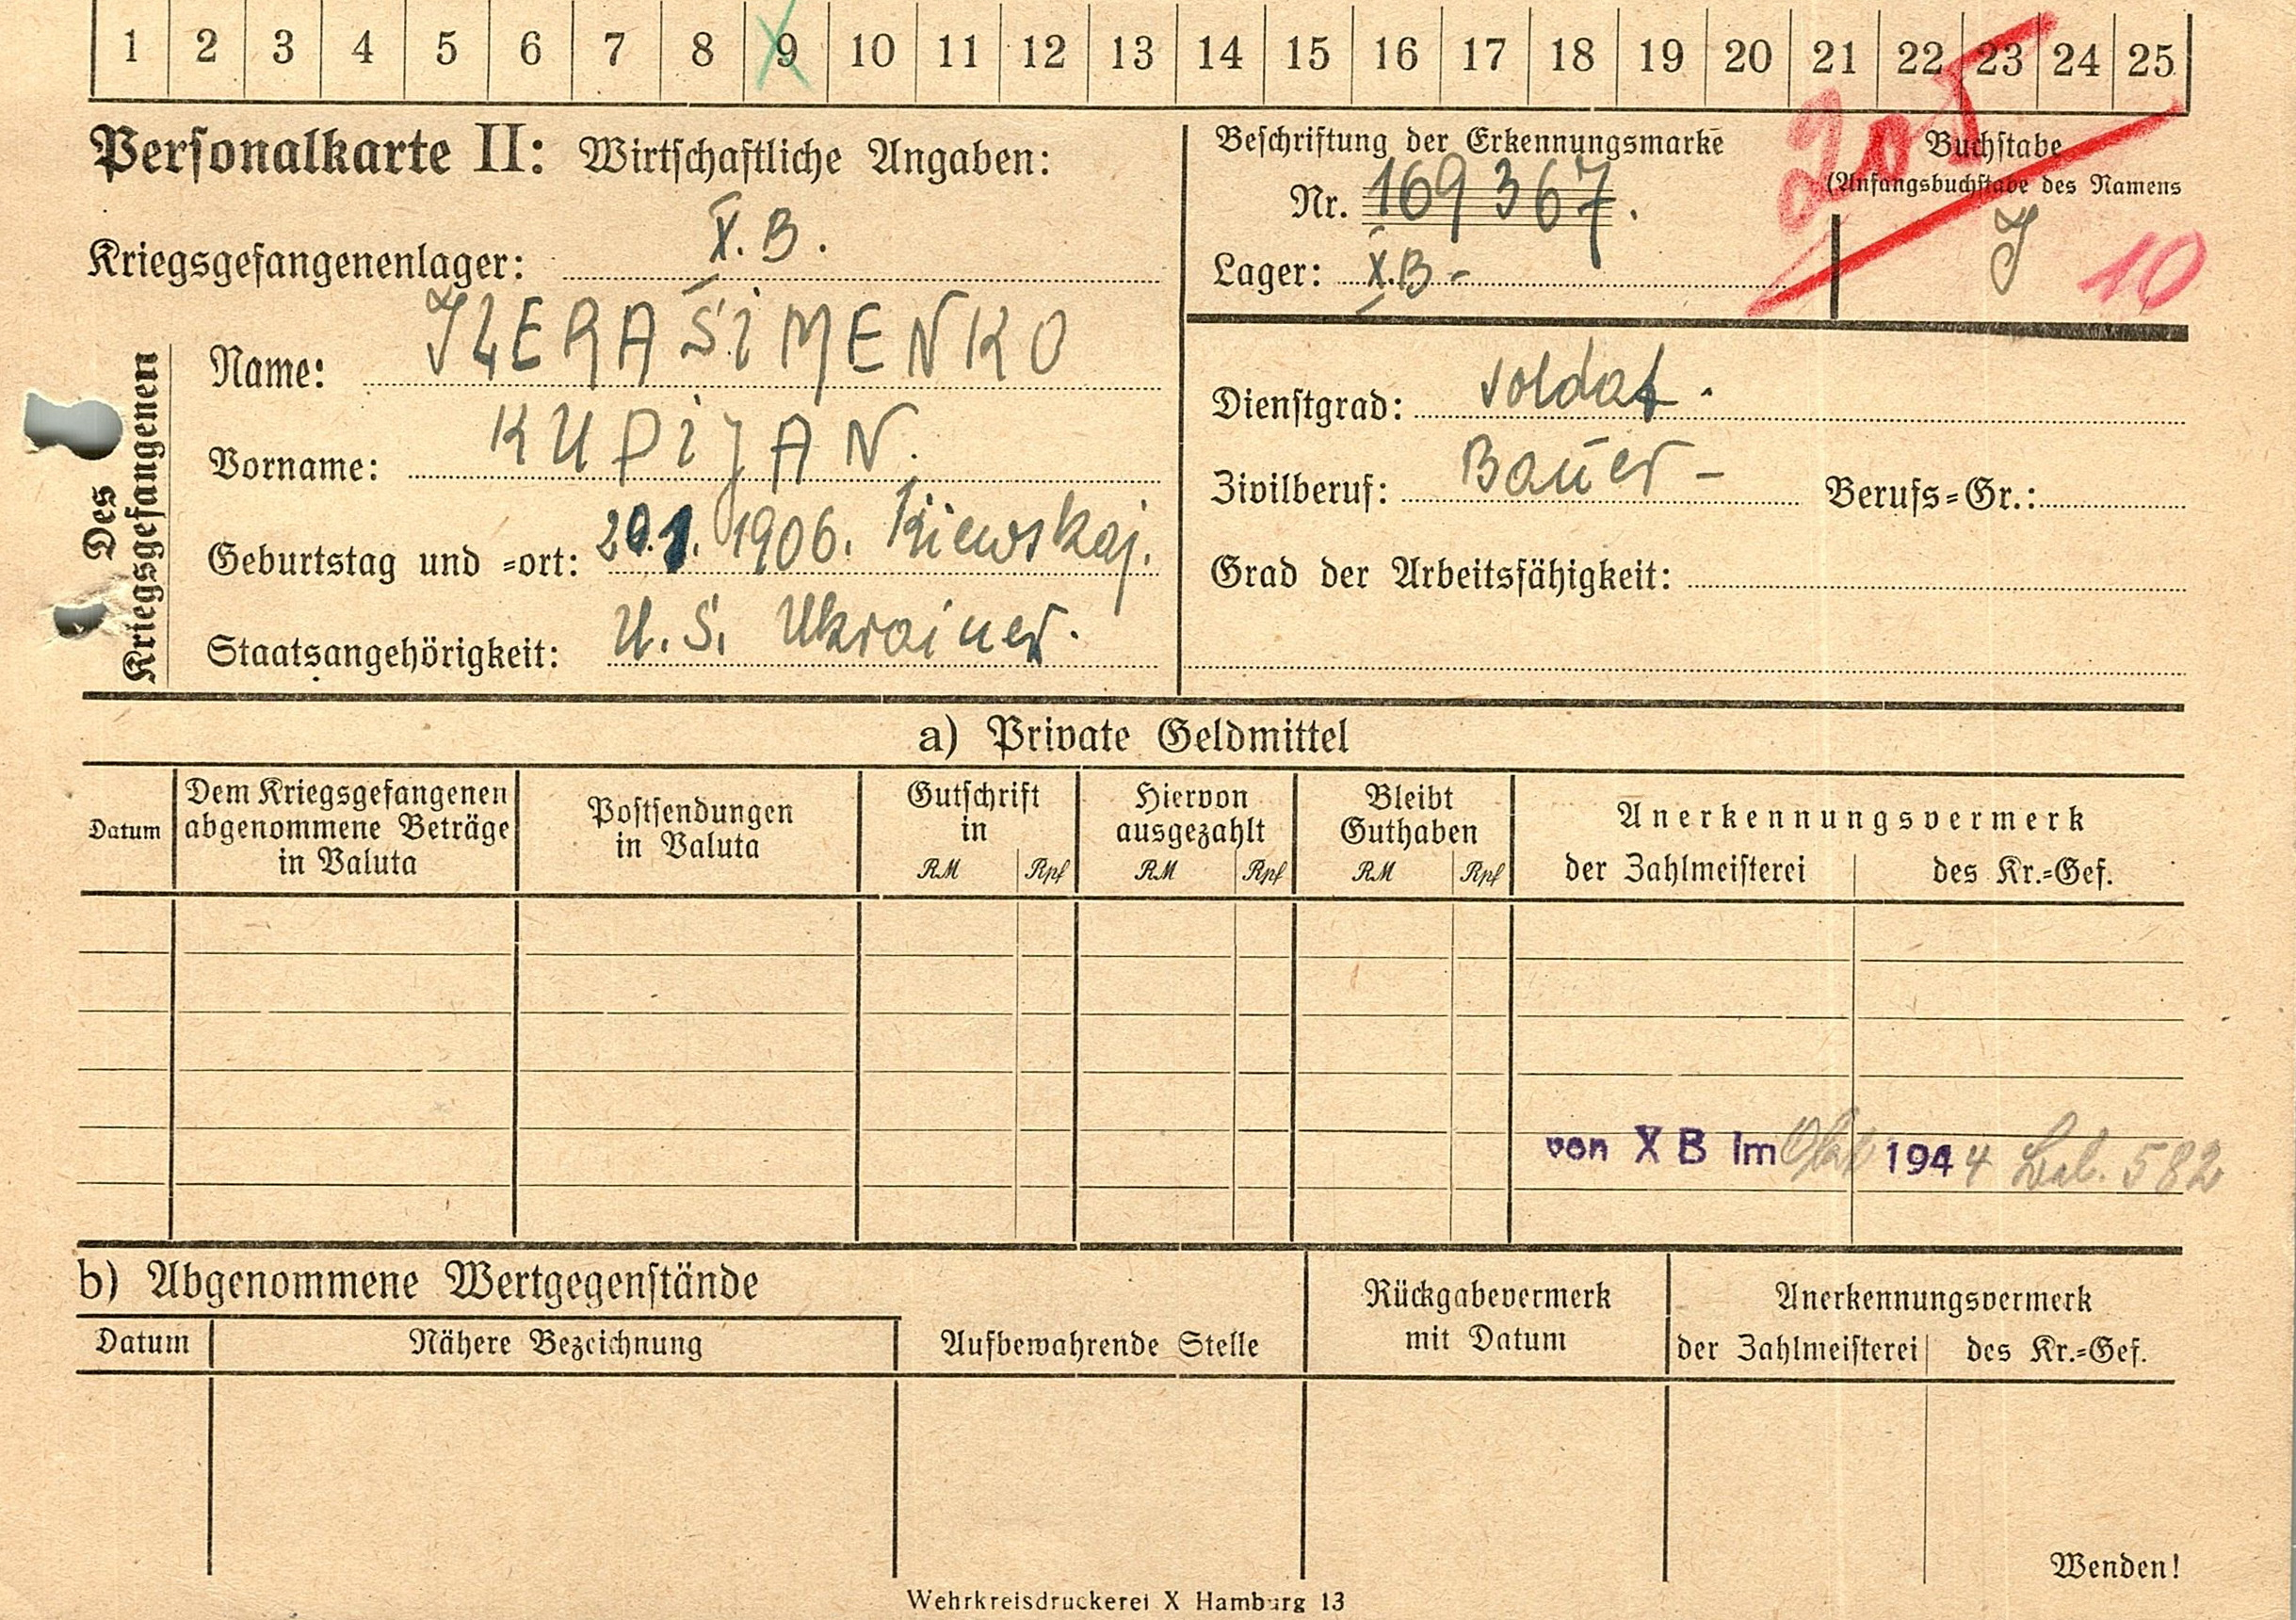 1 2 3 4 5 6 7 8 9 10 11 12 13 14 15 16 17 18 19 20 21 22 23 24 25
Personalkarte II: Wirtschaftliche Angaben:
Kriegsgefangenenlager: X.B.
Beschriftung der Erkennungsmarke
Nr. 169367.
Lager: X.B-
Buchstabe
(Anfangsbuchstabe des Namens
J
10
Des
Kriegsgefangenen
Name:
Vorname: KUPiJAN.
Geburtstag und =ort: 1906. Kiewskaj.
Staatsangehörigkeit: U.S. Ukrainer.
Dienstgrad: Soldat.
Zivilberuf: Bauer- Berufs=Gr.:
Grad der Arbeitsfähigkeit:
a) Private Geldmittel
Datum
Dem Kriegsgefangenen
abgenommene Beträge
in Valuta
Postsendungen
in Valuta
Gutschrift
in
RM Rpf
Hiervon
ausgezahlt
RM Rpf
Bleibt
Guthaben
RM Rpf
Anerkennungsvermerk
der Zahlmeisterei des Kr.=Gef.
von X B Im 1944 582
b) Abgenommene Wertgegenstände
Datum Nähere Bezeichnung Aufbewahrende Stelle
Rückgabevermerk
mit Datum
Anerkennungsvermerk
der Zahlmeisterei des Kr.=Gef.
Wenden!
Wehrkreisdruckerei X Hamburg 13